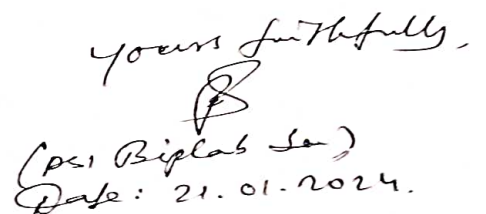 yours faithfully,
(PSI Biplab Sen)
Date: 21.01.2024.